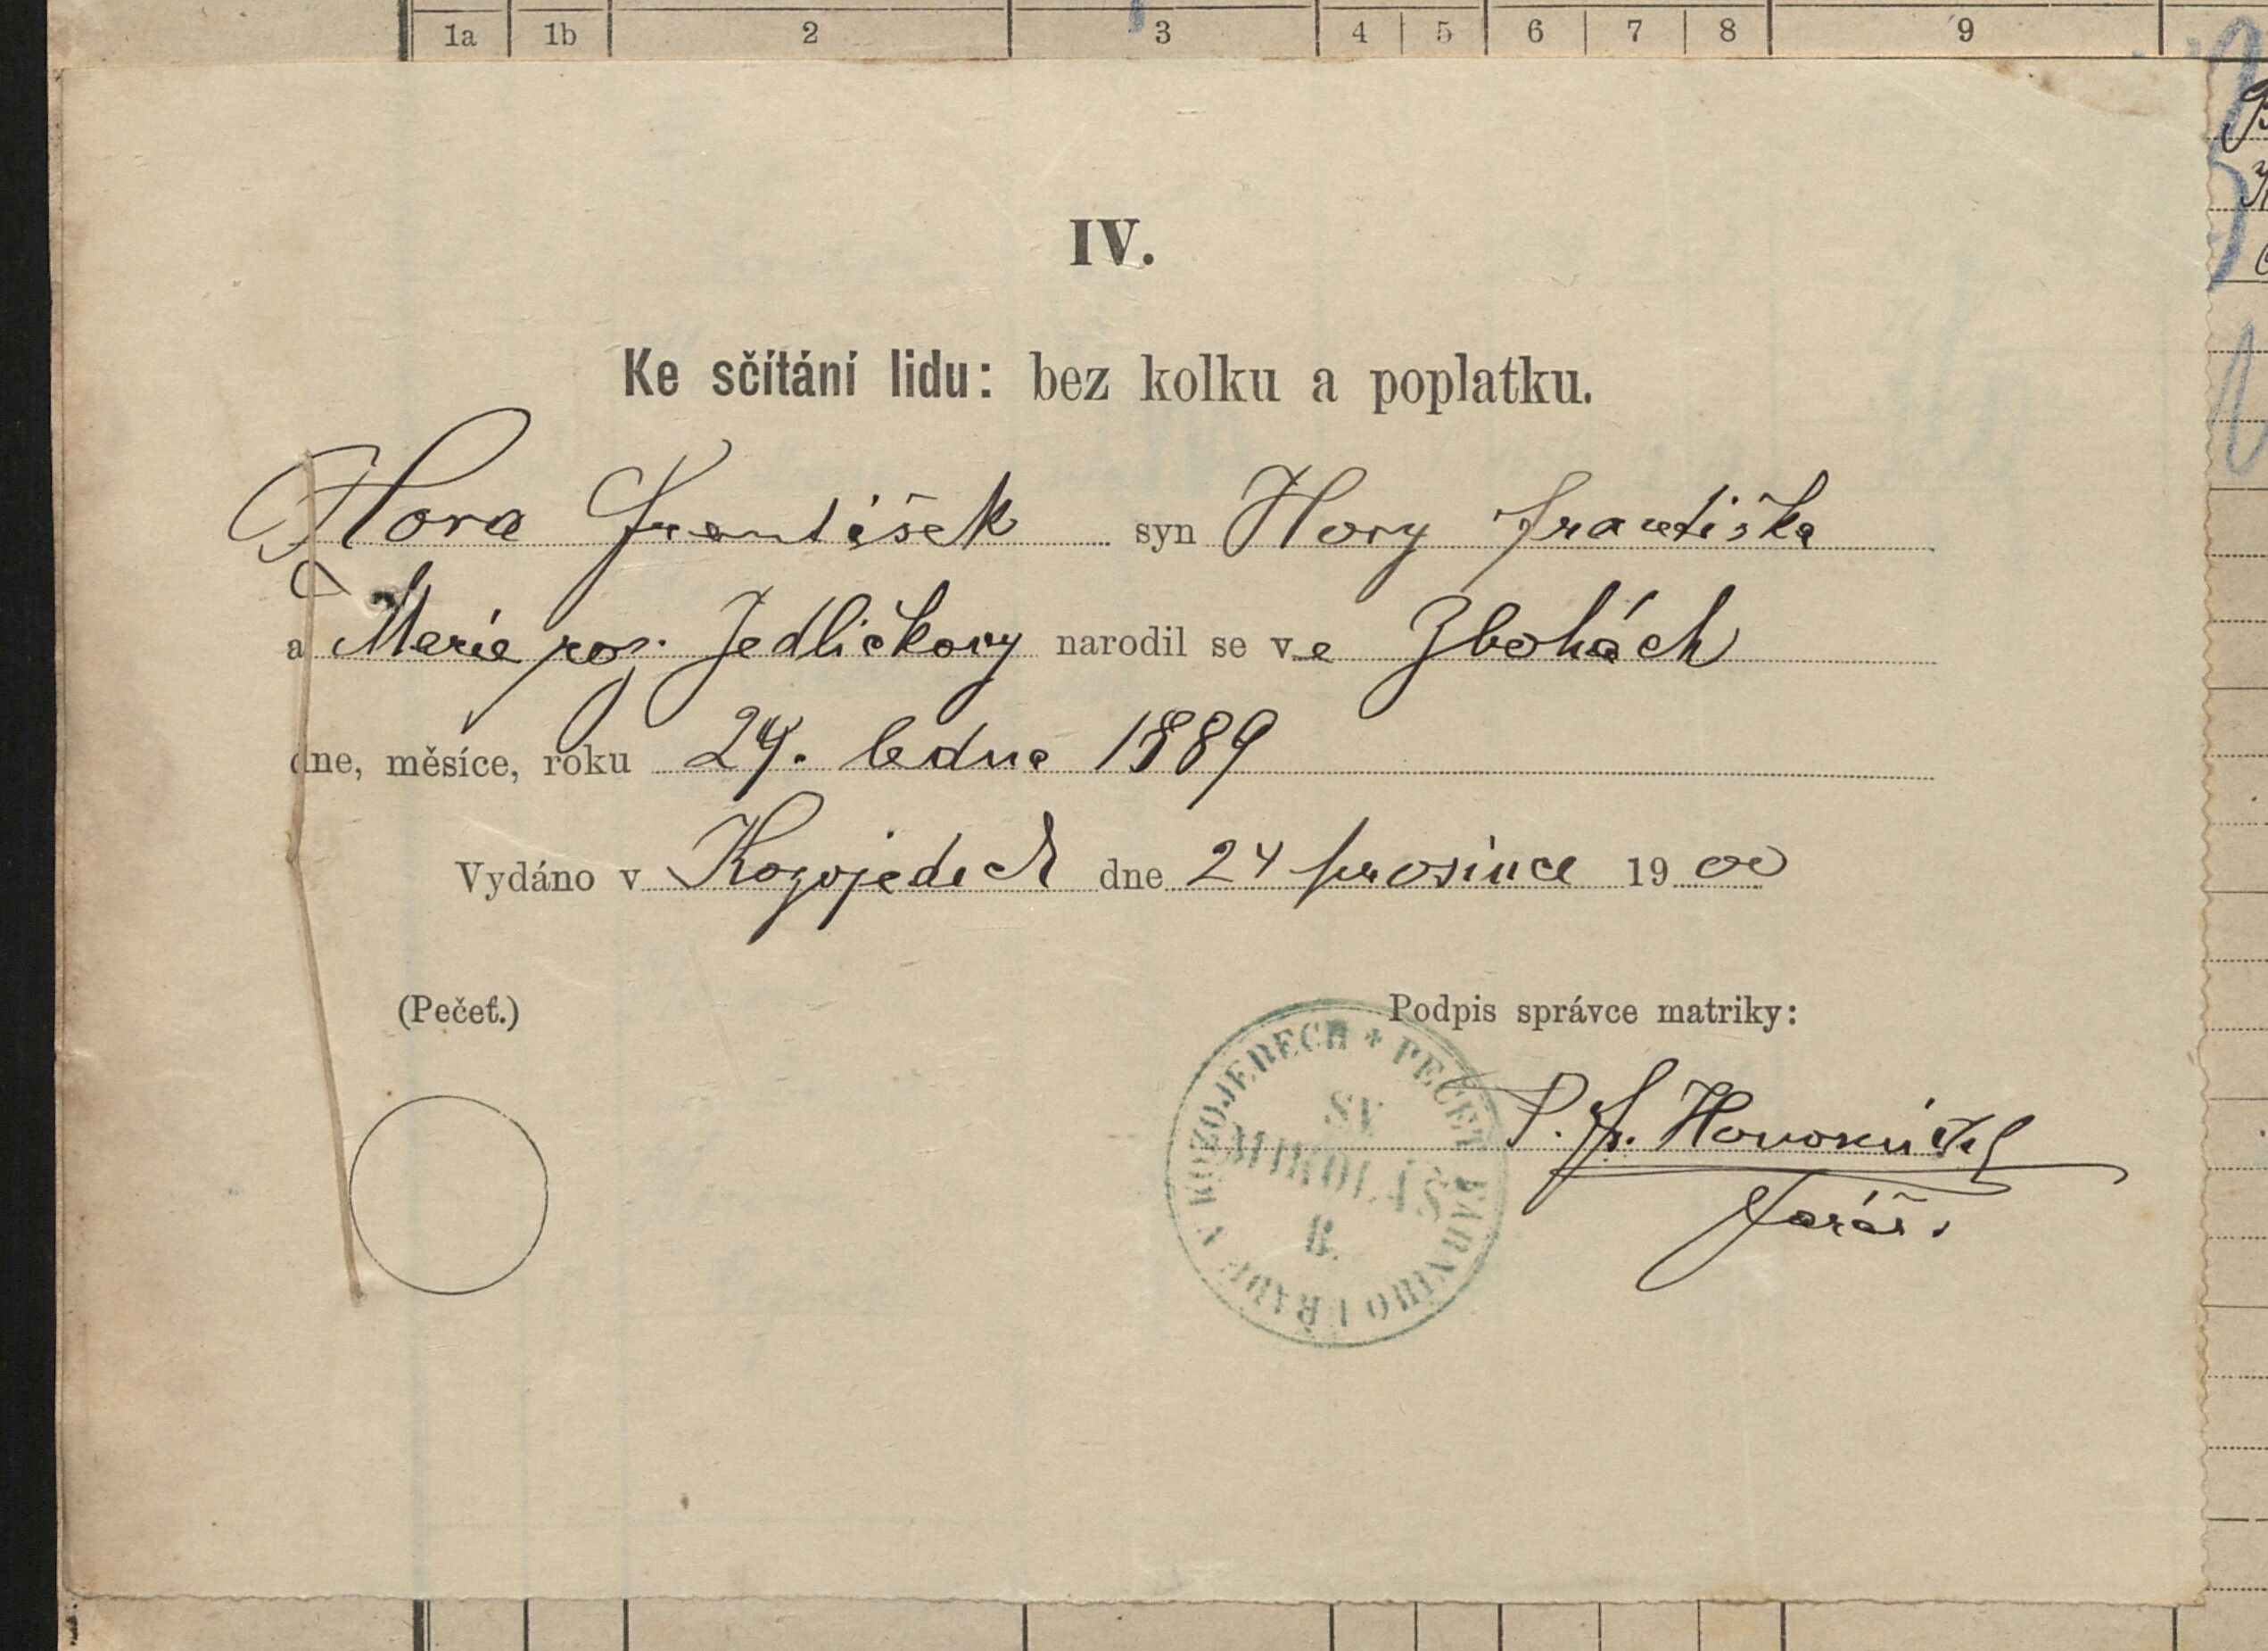 1a 1b 2 3 4 5 6 7 8 9
IV.
Ke sčítání lidu: bez kolku a poplatku.
Hora František syn Hory Františka
a Marie roz. Jedličkovy narodil se ve Zbohách
dne, měsíce, roku 29. ledna 1889
Vydáno v Kozojedech dne 24 prosince 1900
(Pečeť.) Podpis správce matriky:
PEČEŤ FARNÍHO ÚŘADU V KOZOJEDECH *
SV.
MIKOLÁŠ
B.
P. Fr.
farář.